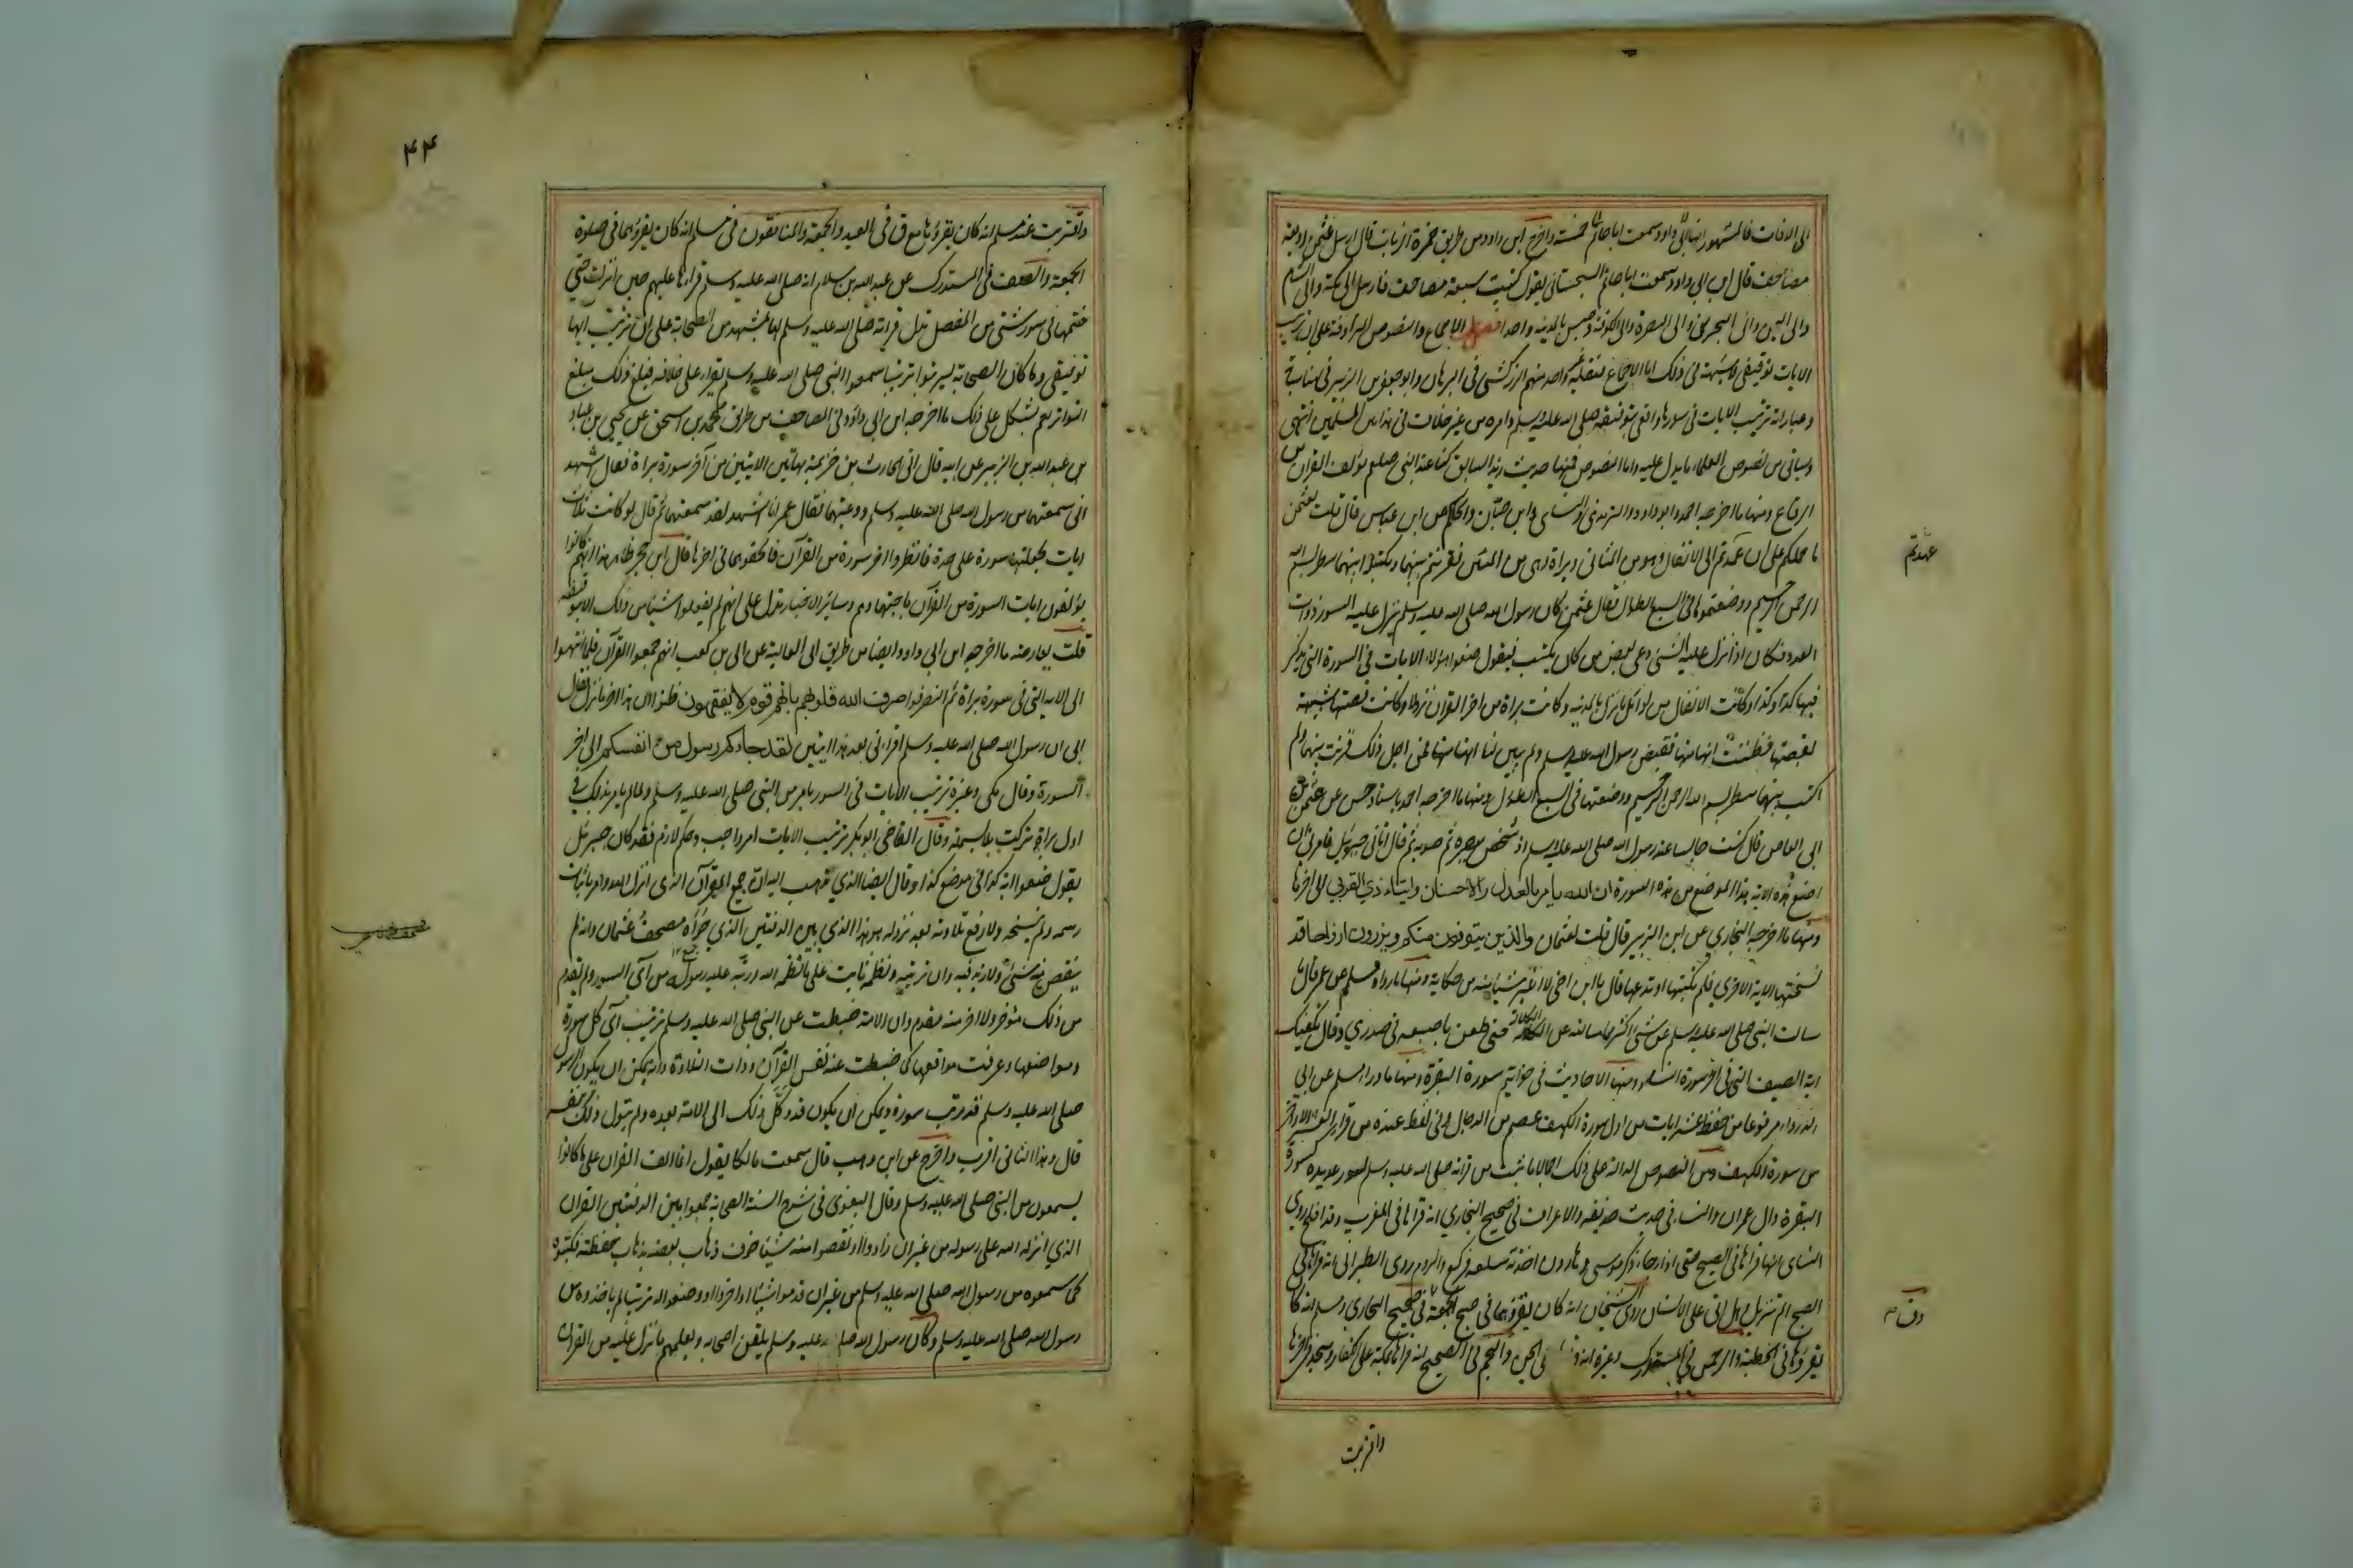 الى الافاق فالمشهور انها خمسة واخرج ابن ابي داود من طريق حمزة الزيات قال ارسل عثمن اربعة
مصاحف قال ابن ابي داود وسمعت ابا حاتم السجستاني يقول كتبت سبعة مصاحف فارسل الى مكة والى الشام
والى اليمن والى البحرين والى البصرة والى الكوفة وحبس بالمدينة واحدا فصل الاجماع والنصوص المترادفة على ان ترتيب
الايات توقيفي لا شبهة في ذلك اما الاجماع فنقله غير واحد منهم الزركشي في البرهان وابو جعفر بن الزبير في مناسباته
وعبارته ترتيب الايات في سورها واقع بتوقيفه صلى الله عليه وسلم وامره من غير خلاف في هذا بين المسلمين انتهى
وسياتي من نصوص العلماء ما يدل عليه واما النصوص فمنها حديث زيد السابق كنا عند النبي صلعم نؤلف القران من
الرقاع ومنها ما اخرجه احمد وابو داود والترمذي والنسائي وابن حبان والحاكم عن ابن عباس قال قلت لعثمن
ما حملكم على ان عمدتم الى الانفال وهي من المثاني وبراة وهي من المئين فقرنتم بينهما ولم تكتبوا بينهما سطر بسم الله
الرحمن الرحيم ووضعتموها في السبع الطوال فقال عثمن كان رسول الله صلى الله عليه وسلم تنزل عليه السور ذوات
العدد فكان اذا نزل عليه الشئ دعى بعض من كان يكتب فيقول ضعوا هؤلاء الايات في السورة التي يذكر
فيها كذا وكذا وكانت الانفال من اوائل ما نزل بالمدينة وكانت براة من اخر القران نزولا وكانت قصتها شبيهة
بقصتها فظننت انها منها فقبض رسول الله عليه وسلم ولم يبين لنا انها منها فمن اجل ذلك قرنت بينهما ولم
اكتب بينهما سطر بسم الله الرحمن الرحيم ووضعتها في السبع الطول ومنها ما اخرجه احمد باسناد حسن عن عثمن بن
ابي العاص قال كنت جالسا عند رسول الله صلى الله عليه وسلم اذ شخص ببصره ثم صوبه ثم قال اتاني جبرئيل فامرني ان
اضع هذه الاية هذا الموضع من هذه السورة ان الله يامر بالعدل والاحسان وايتاء ذي القربى الى اخرها
ومنها ما اخرجه البخاري عن ابن الزبير قال قلت لعثمان والذين يتوفون منكم ويذرون ازواجا قد
نسختها الاية الاخرى فلم تكتبها او تدعها قال يا ابن اخي لا اغير شيئا منه من مكانه ومنها ما رواه مسلم عن عمر قال ما
سالت النبي صلى الله عليه وسلم عن شئ اكثر مما سالته عن الكلالة حتى طعن باصبعه في صدري وقال تكفيك
اية الصيف التي في اخر سورة النساء ومنها الاحاديث في خواتيم سورة البقرة ومنها ما رواه مسلم عن ابي
الدرداء مرفوعا من حفظ عشر ايات من اول سورة الكهف عصم من الدجال وفي لفظ عنده من قرا العشر الاواخر
من سورة الكهف ومن النصوص الدالة على ذلك اجمالا ما ثبت من قراته صلى الله عليه وسلم لسور عديدة كسورة
البقرة وال عمران والنساء في حديث حذيفة والاعراف في صحيح البخاري انه قراها في المغرب وقد افلح روى
النسائي انه قراها في الصبح حتى اذا جاء ذكر موسى وهارون اخذته سعلة فركع والروم روى الطبراني انه قراها في
الصبح والم تنزيل وهل اتى على الانسان روى الشيخان انه كان يقرؤهما في صبح الجمعة وق في صحيح مسلم انه كان
يقرؤها في الخطبة والرحمن في المستدرك وغيره انه قراها على الجن والنجم في الصحيح انه قراها بمكة على الكفار وسجد في اخرها
واقتربت
عمدتم
وق م
۴۴
واقتربت عند مسلم انه كان يقرؤها مع ق في العيد والجمعة والمنافقون في مسلم انه كان يقرؤهما في صلوة
الجمعة والصف في المستدرك عن عبد الله بن سلام انه صلى الله عليه وسلم قراها عليهم حين انزلت حتى
ختمها في سور شتى من المفصل تدل قراته صلى الله عليه وسلم لها بمشهد من الصحابة على ان ترتيب اياتها
توقيفي وما كان الصحابة ليرتبوا ترتيبا سمعوا النبي صلى الله عليه وسلم يقرا على خلافه فبلغ ذلك مبلغ
التواتر نعم يشكل على ذلك ما اخرجه ابن ابي داود في المصاحف من طريق محمد بن اسحق عن يحيى بن عباد
بن عبد الله بن الزبير عن ابيه قال اتى الحارث بن خزيمة بهاتين الايتين من آخر سورة براة فقال اشهد
اني سمعتهما من رسول الله صلى الله عليه وسلم ووعيتهما فقال عمر انا اشهد لقد سمعتهما ثم قال لو كانت ثلاث
ايات لجعلتها سورة على حدة فانظروا اخر سورة من القرآن فالحقوهما في اخرها قال ابن حجر ظاهر هذا انهم كانوا
يؤلفون ايات السورة من القرآن باجتهادهم وسائر الاخبار تدل على انهم لم يفعلوا شيئا من ذلك الا بتوقيف
قلت يعارضه ما اخرجه ابن ابي داود ايضا من طريق ابي العالية عن ابي بن كعب انهم جمعوا القرآن فلما انتهوا
الى الاية التي في سورة براة ثم انصرفوا صرف الله قلوبهم بانهم قوم لا يفقهون ظنوا ان هذا اخر ما نزل فقال
ابي ان رسول الله صلى الله عليه وسلم اقراني بعد هذا ايتين لقد جاءكم رسول من انفسكم الى اخر
السورة وقال مكي وغيره ترتيب الايات في السور بامر من النبي صلى الله عليه وسلم ولما لم يامر بذلك في
اول براة تركت بلا بسملة وقال القاضي ابو بكر ترتيب الايات امر واجب وحكم لازم فقد كان جبرئيل
يقول ضعوا اية كذا في موضع كذا وقال ايضا الذي نذهب اليه ان جميع القرآن الذي انزل الله وامر باثبات
رسمه ولم ينسخه ولا رفع تلاوته بعد نزوله هو هذا الذي بين الدفتين الذي حواه مصحف عثمان وانه لم
ينقص منه شئ ولا زيد فيه وان ترتيبه ونظمه ثابت على ما نظمه الله ورتبه عليه رسوله من آي السور ولم يقدم
من ذلك مؤخر ولا اخر منه مقدم وان الامة ضبطت عن النبي صلى الله عليه وسلم ترتيب آي كل سورة
ومواضعها وعرفت مواقعها كما ضبطت عنه نفس القرآن وذات التلاوة وانه يمكن ان يكون الرسول
صلى الله عليه وسلم قد رتب سوره ويمكن ان يكون قد وكل ذلك الى الامة بعده ولم يتول ذلك بنفسه
قال وهذا الثاني اقرب واخرج عن ابن وهب قال سمعت مالكا يقول انما الف القران على ما كانوا
يسمعون من النبي صلى الله عليه وسلم وقال البغوي في شرح السنة الصحابة جمعوا بين الدفتين القران
الذي انزله الله على رسوله من غير ان زادوا او نقصوا منه شيئا خوف ذهاب بعضه بذهاب حفظته فكتبوه
كما سمعوه من رسول الله صلى الله عليه وسلم من غير ان قدموا شيئا او اخروا او وضعوا له ترتيبا لم ياخذوه من
رسول الله صلى الله عليه وسلم وكان رسول الله صلى الله عليه وسلم يلقن اصحابه ويعلمهم ما نزل عليه من القران